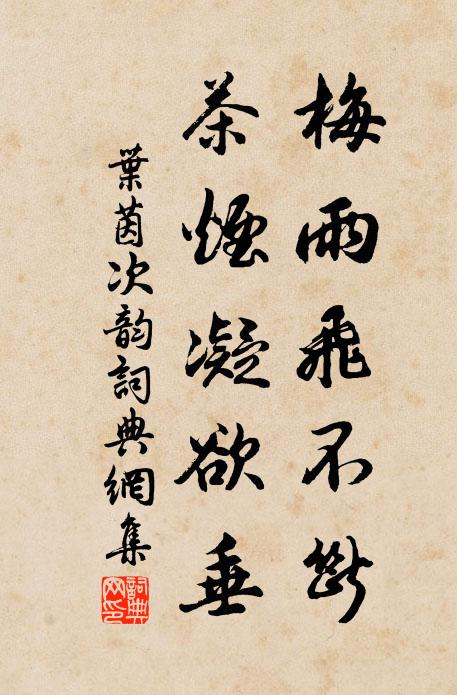 梅雨飛不斷
茶煙凝欲垂
葉茵次韵詞典網集
詞典
网印